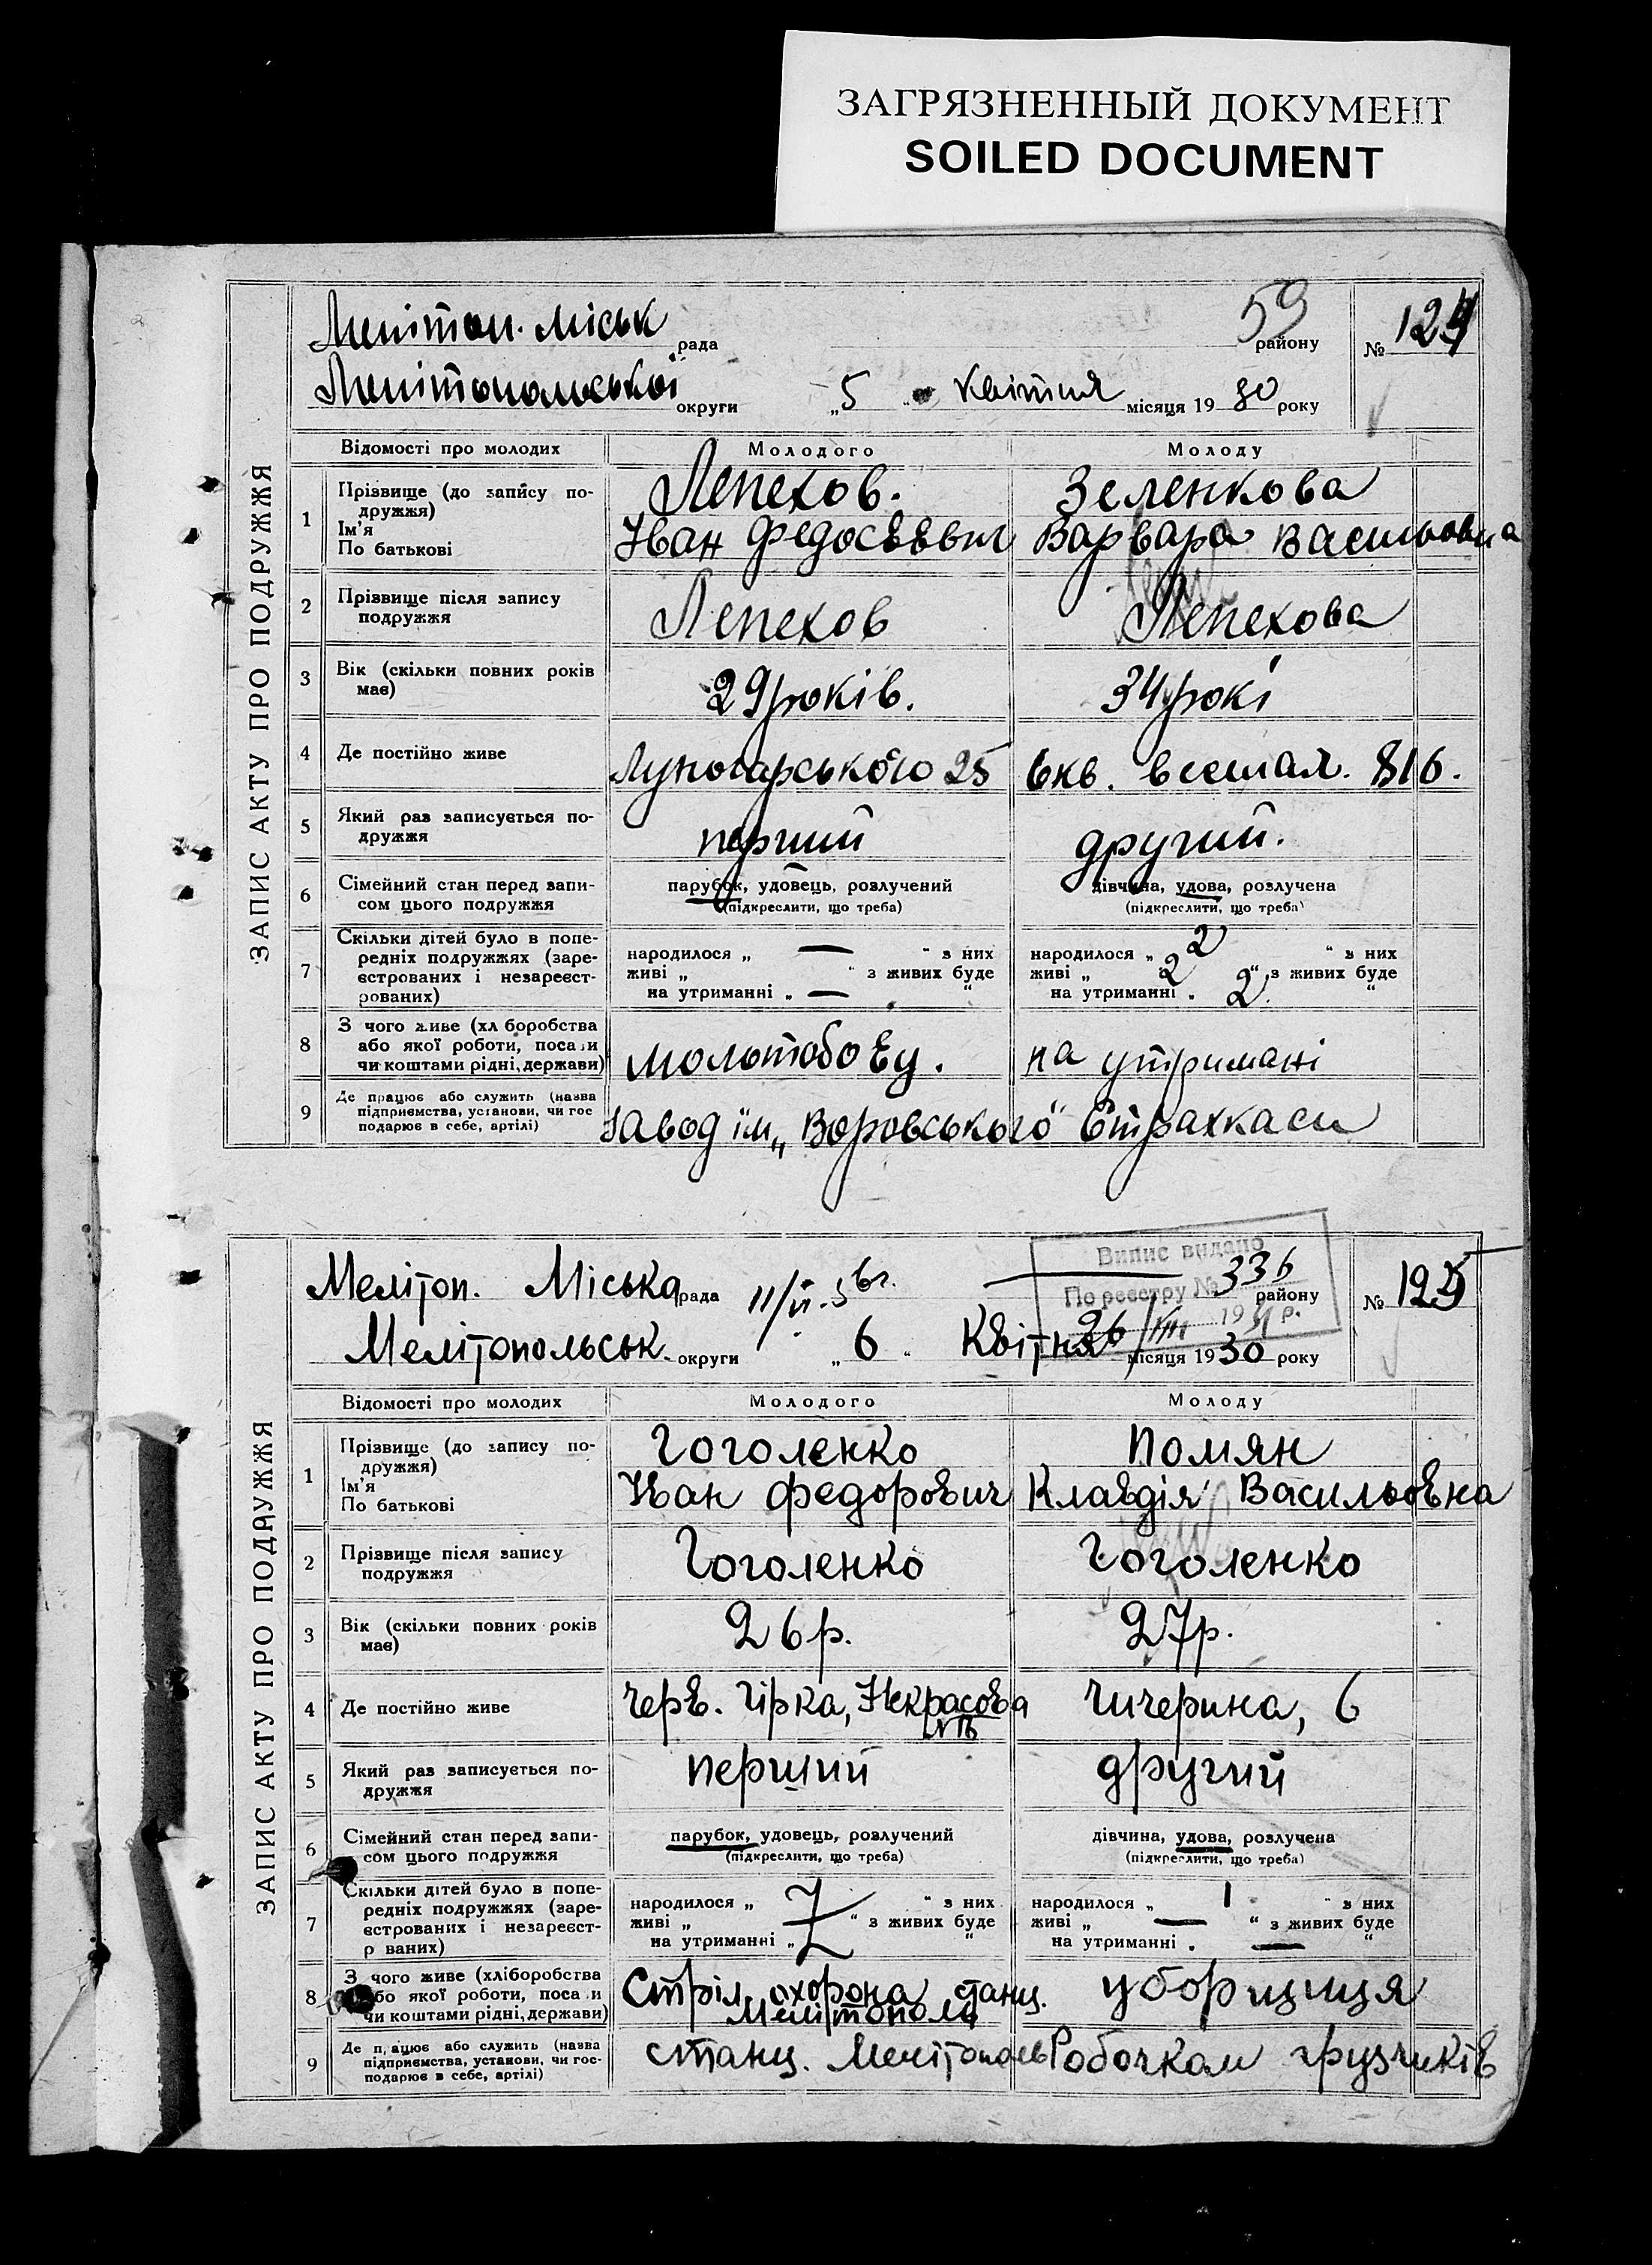 ЗАГРЯЗНЕННЫЙ ДОКУМЕНТ
SOILED DOCUMENT
ЗАПИС АКТУ ПРО ПОДРУЖЖЯ
Меліто​п. міськ рада 59 району № 124
Мелітопольської округи „5“ квітня місяця 1930 року
Відомості про молодих Молодого Молоду
1 Прізвище (до запису по-
дружжя)
Ім'я
По батькові
Лепехов. Зеленкова
Іван Федосѣевич Варвара Васильовна
2 Прізвище після запису
подружжя
Лепехов Лепехова
3 Вік (скільки повних років
має)
29 років. 34 рокі
4 Де постійно живе Луночарського 25 6кв. 816.
5 Який раз записується по-
дружжя
перший другий.
6 Сімейний стан перед запи-
сом цього подружжя
парубок, удовець, розлучений дівчина, удова, розлучена
(підкреслити, що треба) (підкреслити, що треба)
7 Скільки дітей було в попе-
редніх подружжях (заре-
єстрованих і незареєст-
рованих)
народилося „ — “ з них народилося „ 2 “ з них
живі „ “ з живих буде живі „ 2 “ з живих буде
на утриманні „ — “ на утриманні „ 2 “
8 З чого живе (хл боробства
або якої роботи, поса и
чи коштами рідні, держави)
молотобоєц. на утримані
9 Де працює або служить (назва
підприємства, установи, чи гос
подарює в себе, артілі)
завод ім „Воровського“ Страхкаси
ЗАПИС АКТУ ПРО ПОДРУЖЖЯ
Випис видано
По реєстру № 336
Мелітоп. Міська рада 11/VI-56г. району № 125
Мелітопольськ. округи „6“ Квітня місяця 1930 року
Відомості про молодих Молодого Молоду
1 Прізвище (до запису по-
дружжя)
Ім'я
По батькові
Гоголенко Помян
Іван Федорович Клавдія Васильовна
2 Прізвище після запису
подружжя
Гоголенко Гоголенко
3 Вік (скільки повних років
має)
26 р. 27 р.
4 Де постійно живе Черв. Гірка, Некрасова Чичерина, 6
5 Який раз записується по-
дружжя
перший другий
6 Сімейний стан перед запи-
сом цього подружжя
парубок, удовець, розлучений дівчина, удова, розлучена
(підкреслити, що треба) (підкреслити, що треба)
7 Скільки дітей було в попе-
редніх подружжях (заре-
єстрованих і незареєст-
р ваних)
народилося „ “ з них народилося „ 1 “ з них
живі „ “ з живих буде живі „ — “ з живих буде
на утриманні „ “ на утриманні „ — “
8 З чого живе (хліборобства
або якої роботи, поса и
чи коштами рідні, держави)
Стріл. охорона станц. уборщиця
Мелітополь
9 Де п, ацює або служить (назва
підприємства, установи, чи гос-
подарює в себе, артілі)
станц. Мелітополь Робочком грузчиків